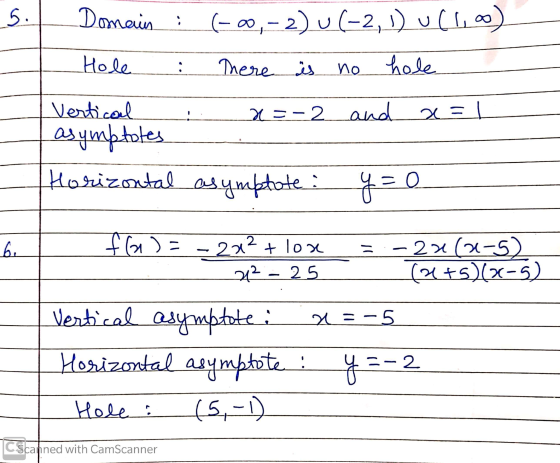 5. Domain : (-∞, -2) ∪ (-2, 1) ∪ (1, ∞)
Hole : There is no hole
Vertical : x = -2 and x = 1
asymptotes
Horizontal asymptote : y = 0
6. f(x) = -2x² + 10x / x² - 25 = -2x(x-5) / (x+5)(x-5)
Vertical asymptote : x = -5
Horizontal asymptote : y = -2
Hole : (5, -1)
CS Scanned with CamScanner